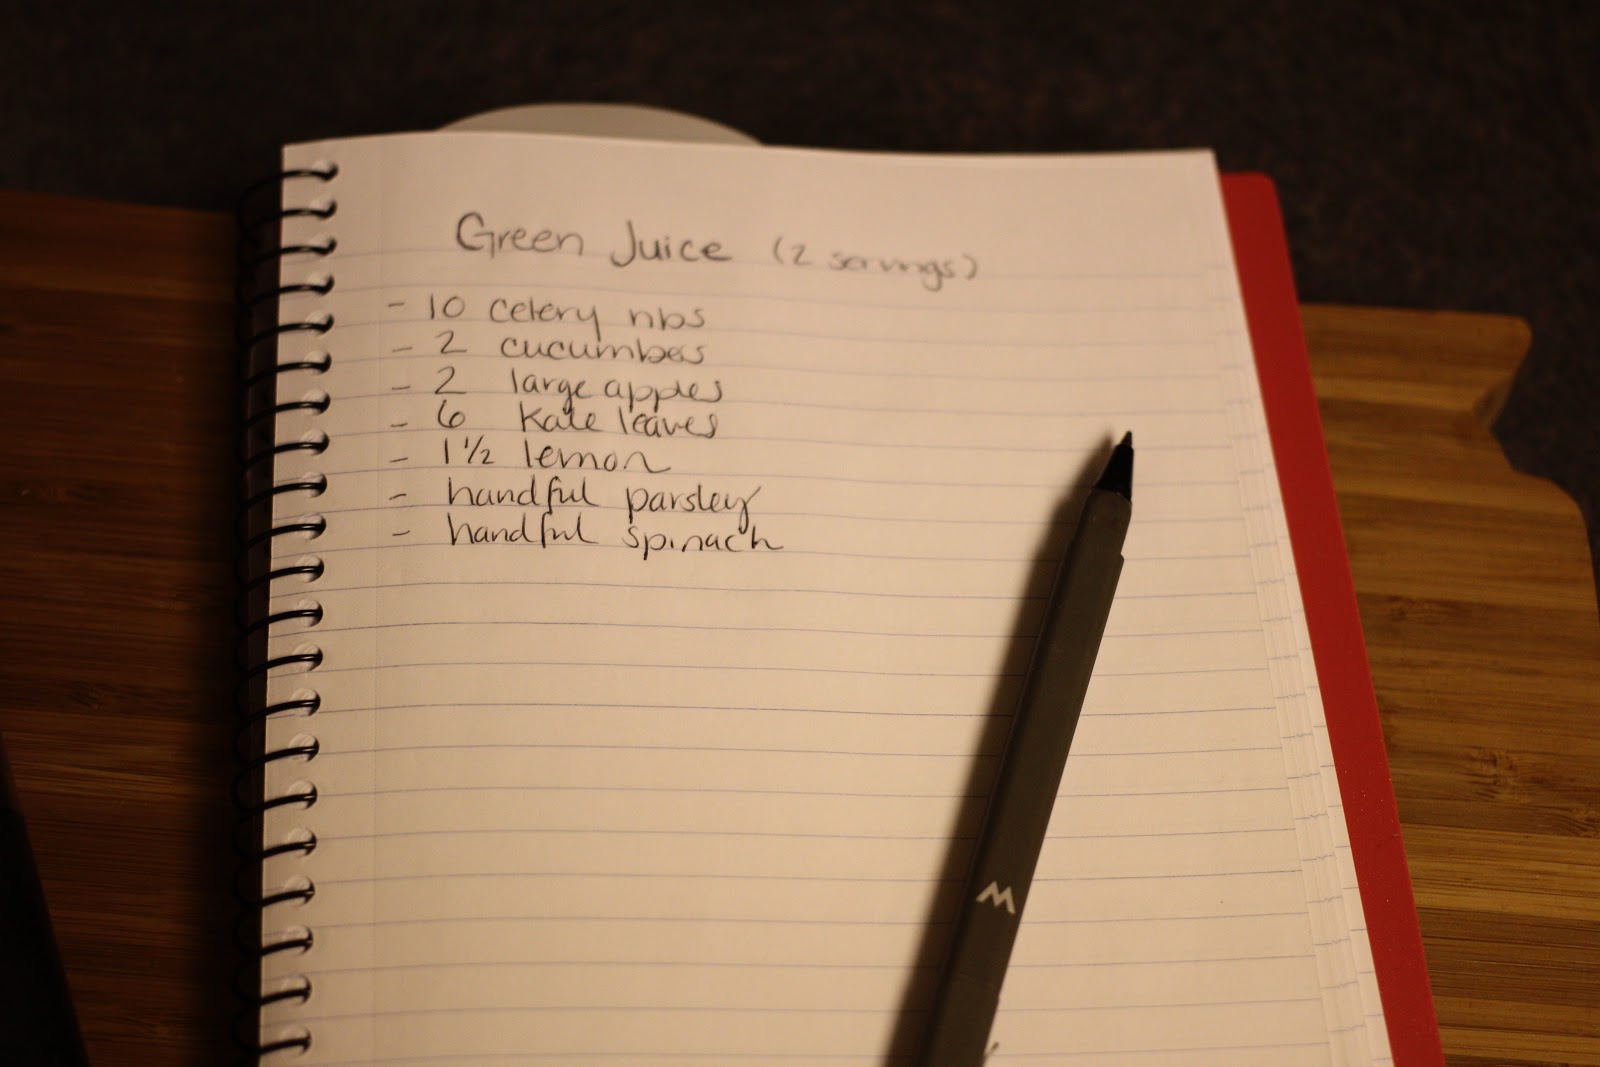 Green Juice (2 servings)
- 10 celery ribs
- 2 cucumbers
- 2 large apples
- 6 Kale leaves
- 1 1/2 lemon
- handful parsley
- handful spinach